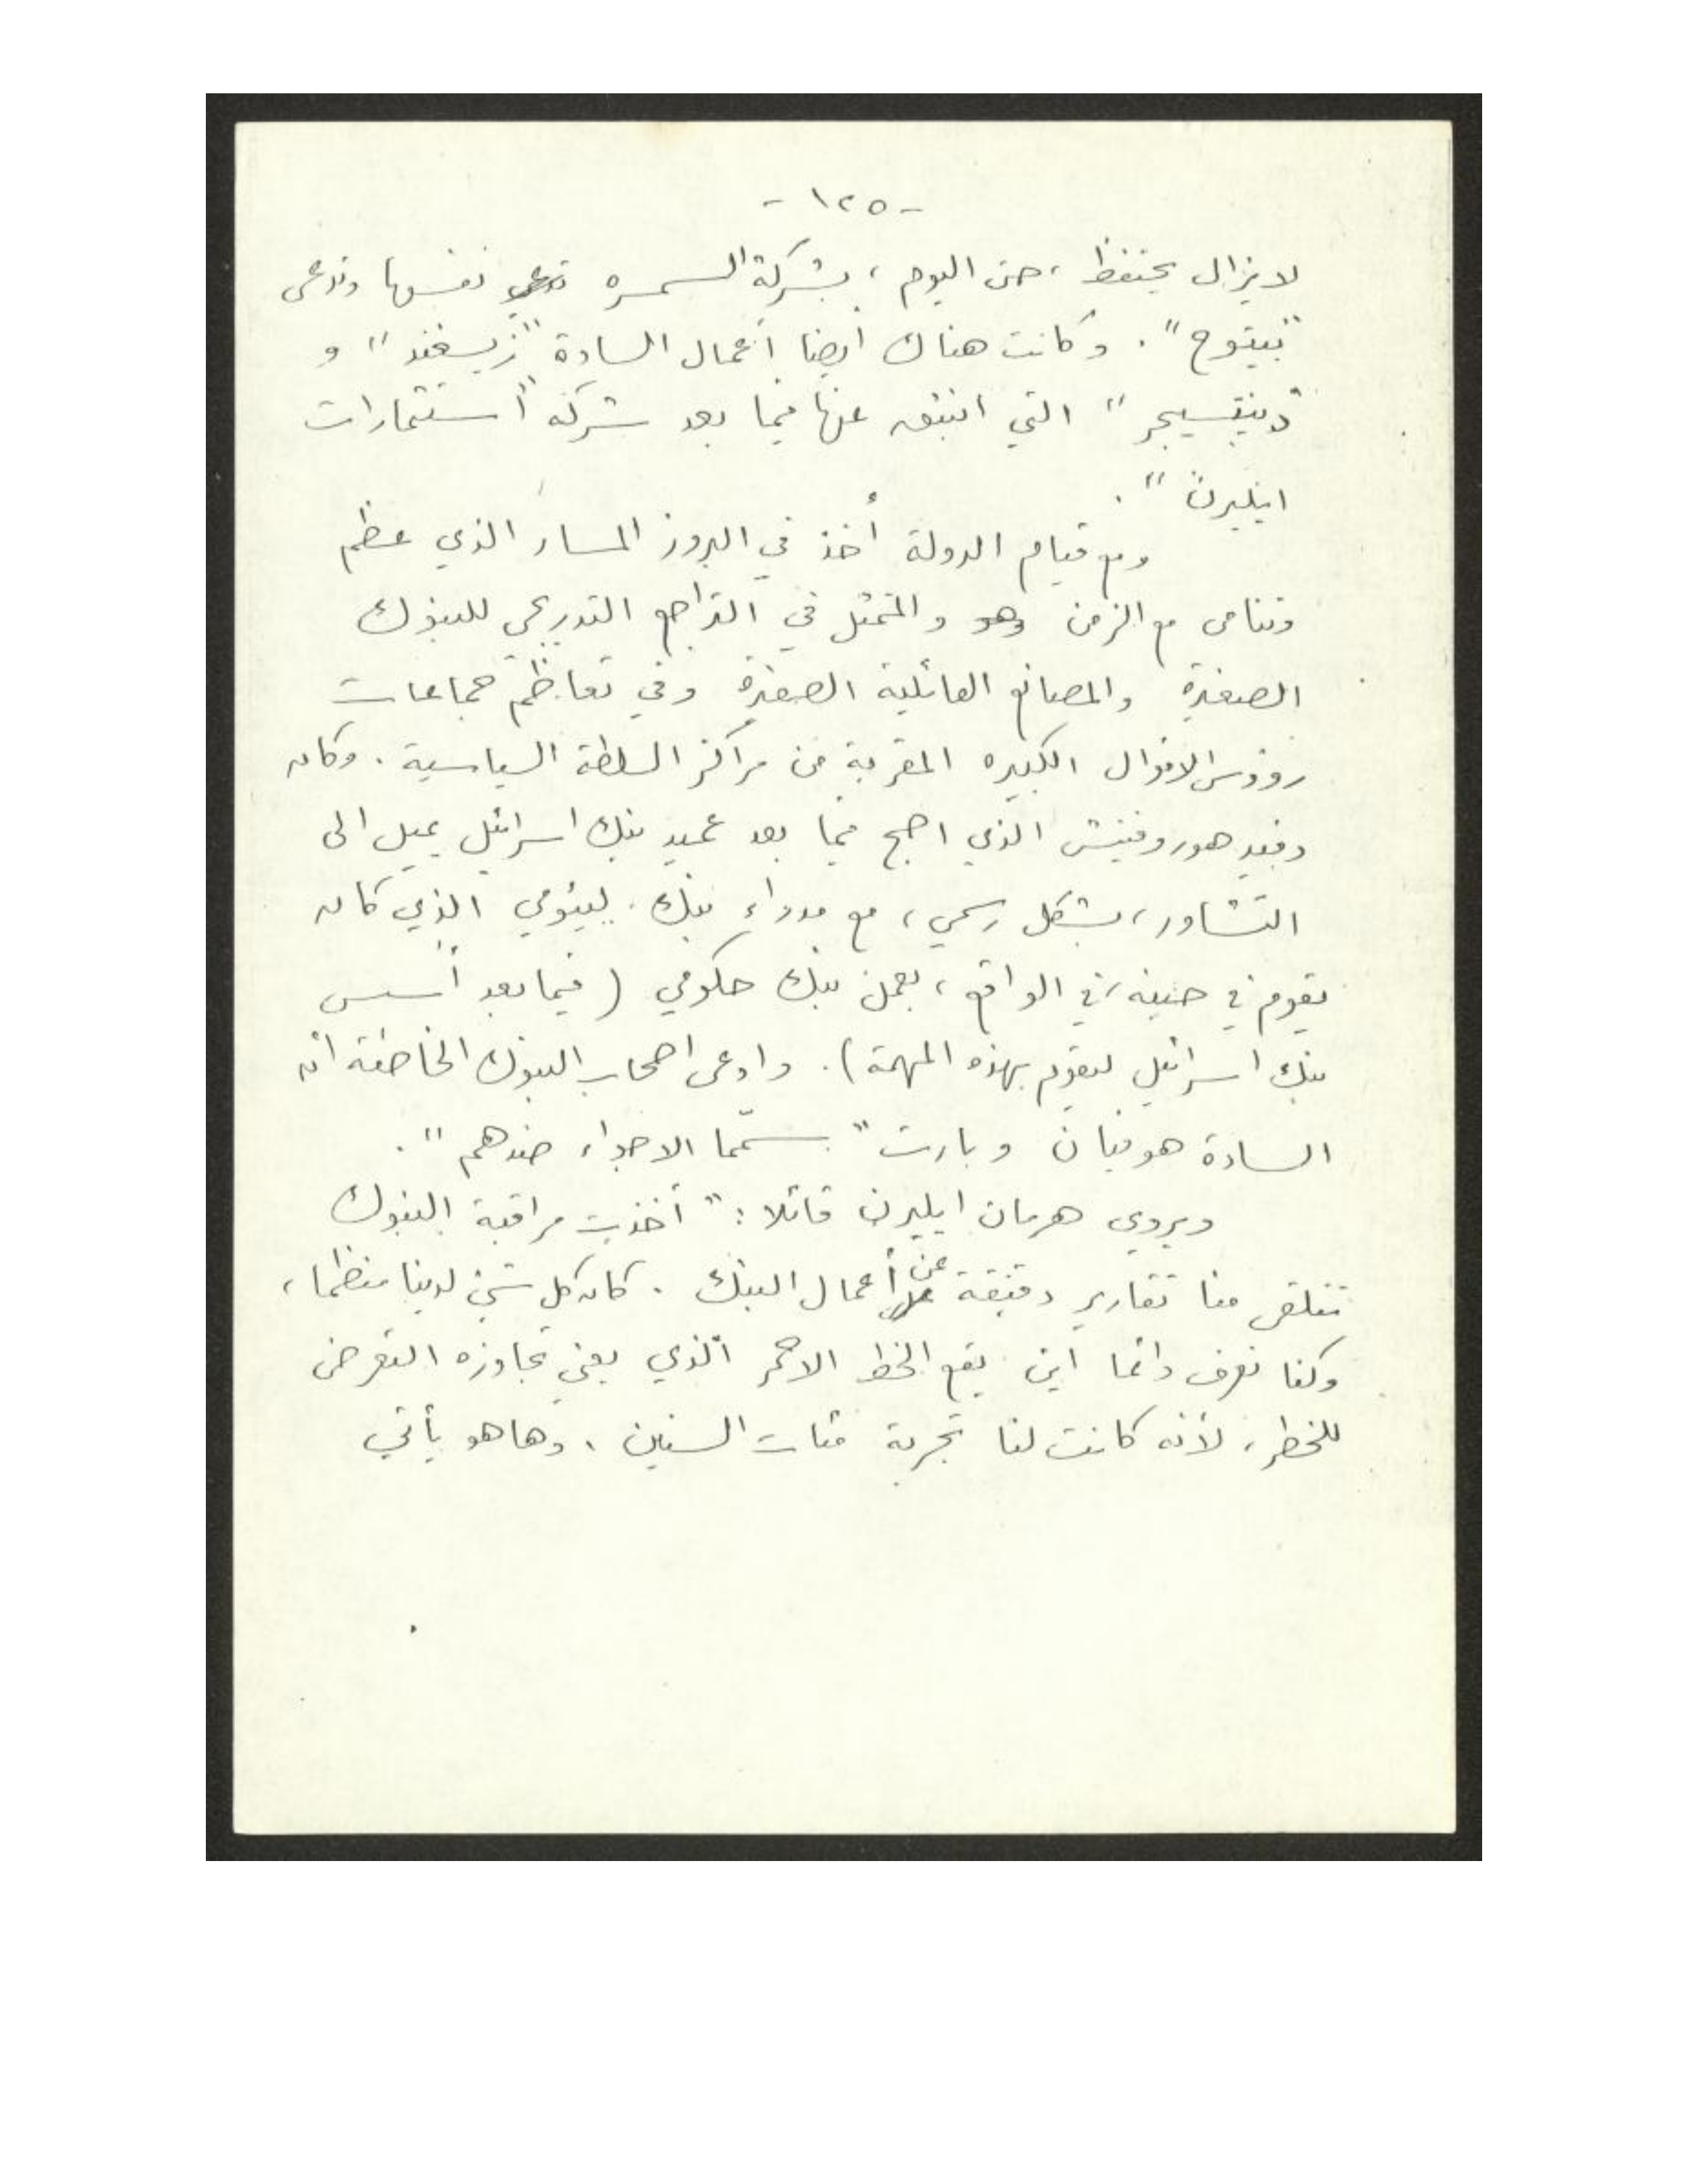 - ١٢٥ -
لا يزال يحتفظ ، حتى اليوم ، بشركة السمسره نفسها وتدعى
"بيتوح" . وكانت هناك ايضا أعمال السادة " و
" التي انبثق عنها فيما بعد شركه "أستثمارات
ايليرن " .
ومع قيام الدولة أخذ في البروز المسار الذي عظم
وتنامى مع الزمن وهو والمتمثل في التراجع التدريجي للبنوك
الصغيرة والمصانع العائلية الصغيرة وفي تعاظم جماعات
رؤوس الاموال الكبيره المقربة من مراكز السلطة السياسية . وكان
دفيد هوروفيتش الذي اصبح فيما بعد عميد بنك اسرائيل يميل الى
التشاور ، بشكل رسمي ، مع مدراء بنك ليئومي الذي كان
يقوم في حينه ، في الواقع ، بعمل بنك حكومي ( فيما بعد أسس
بنك اسرائيل ليقوم بهذه المهمة ) . وادعى اصحاب البنوك الخاصة ان
السادة هوفيان وبارت " الاجواء ضدهم " .
ويروي هرمان ايليرن قائلا : " أخذت مراقبة البنوك
تتلقى منا تقارير دقيقة عن أعمال البنك . كان كل شيئ لدينا منظما ،
وكنا نعرف دائما اين يقع الخط الاحمر الذي يعني تجاوزه التعرض
للخطر ، لأنه كانت لنا تجربة مئات السنين . وها هو يأتي